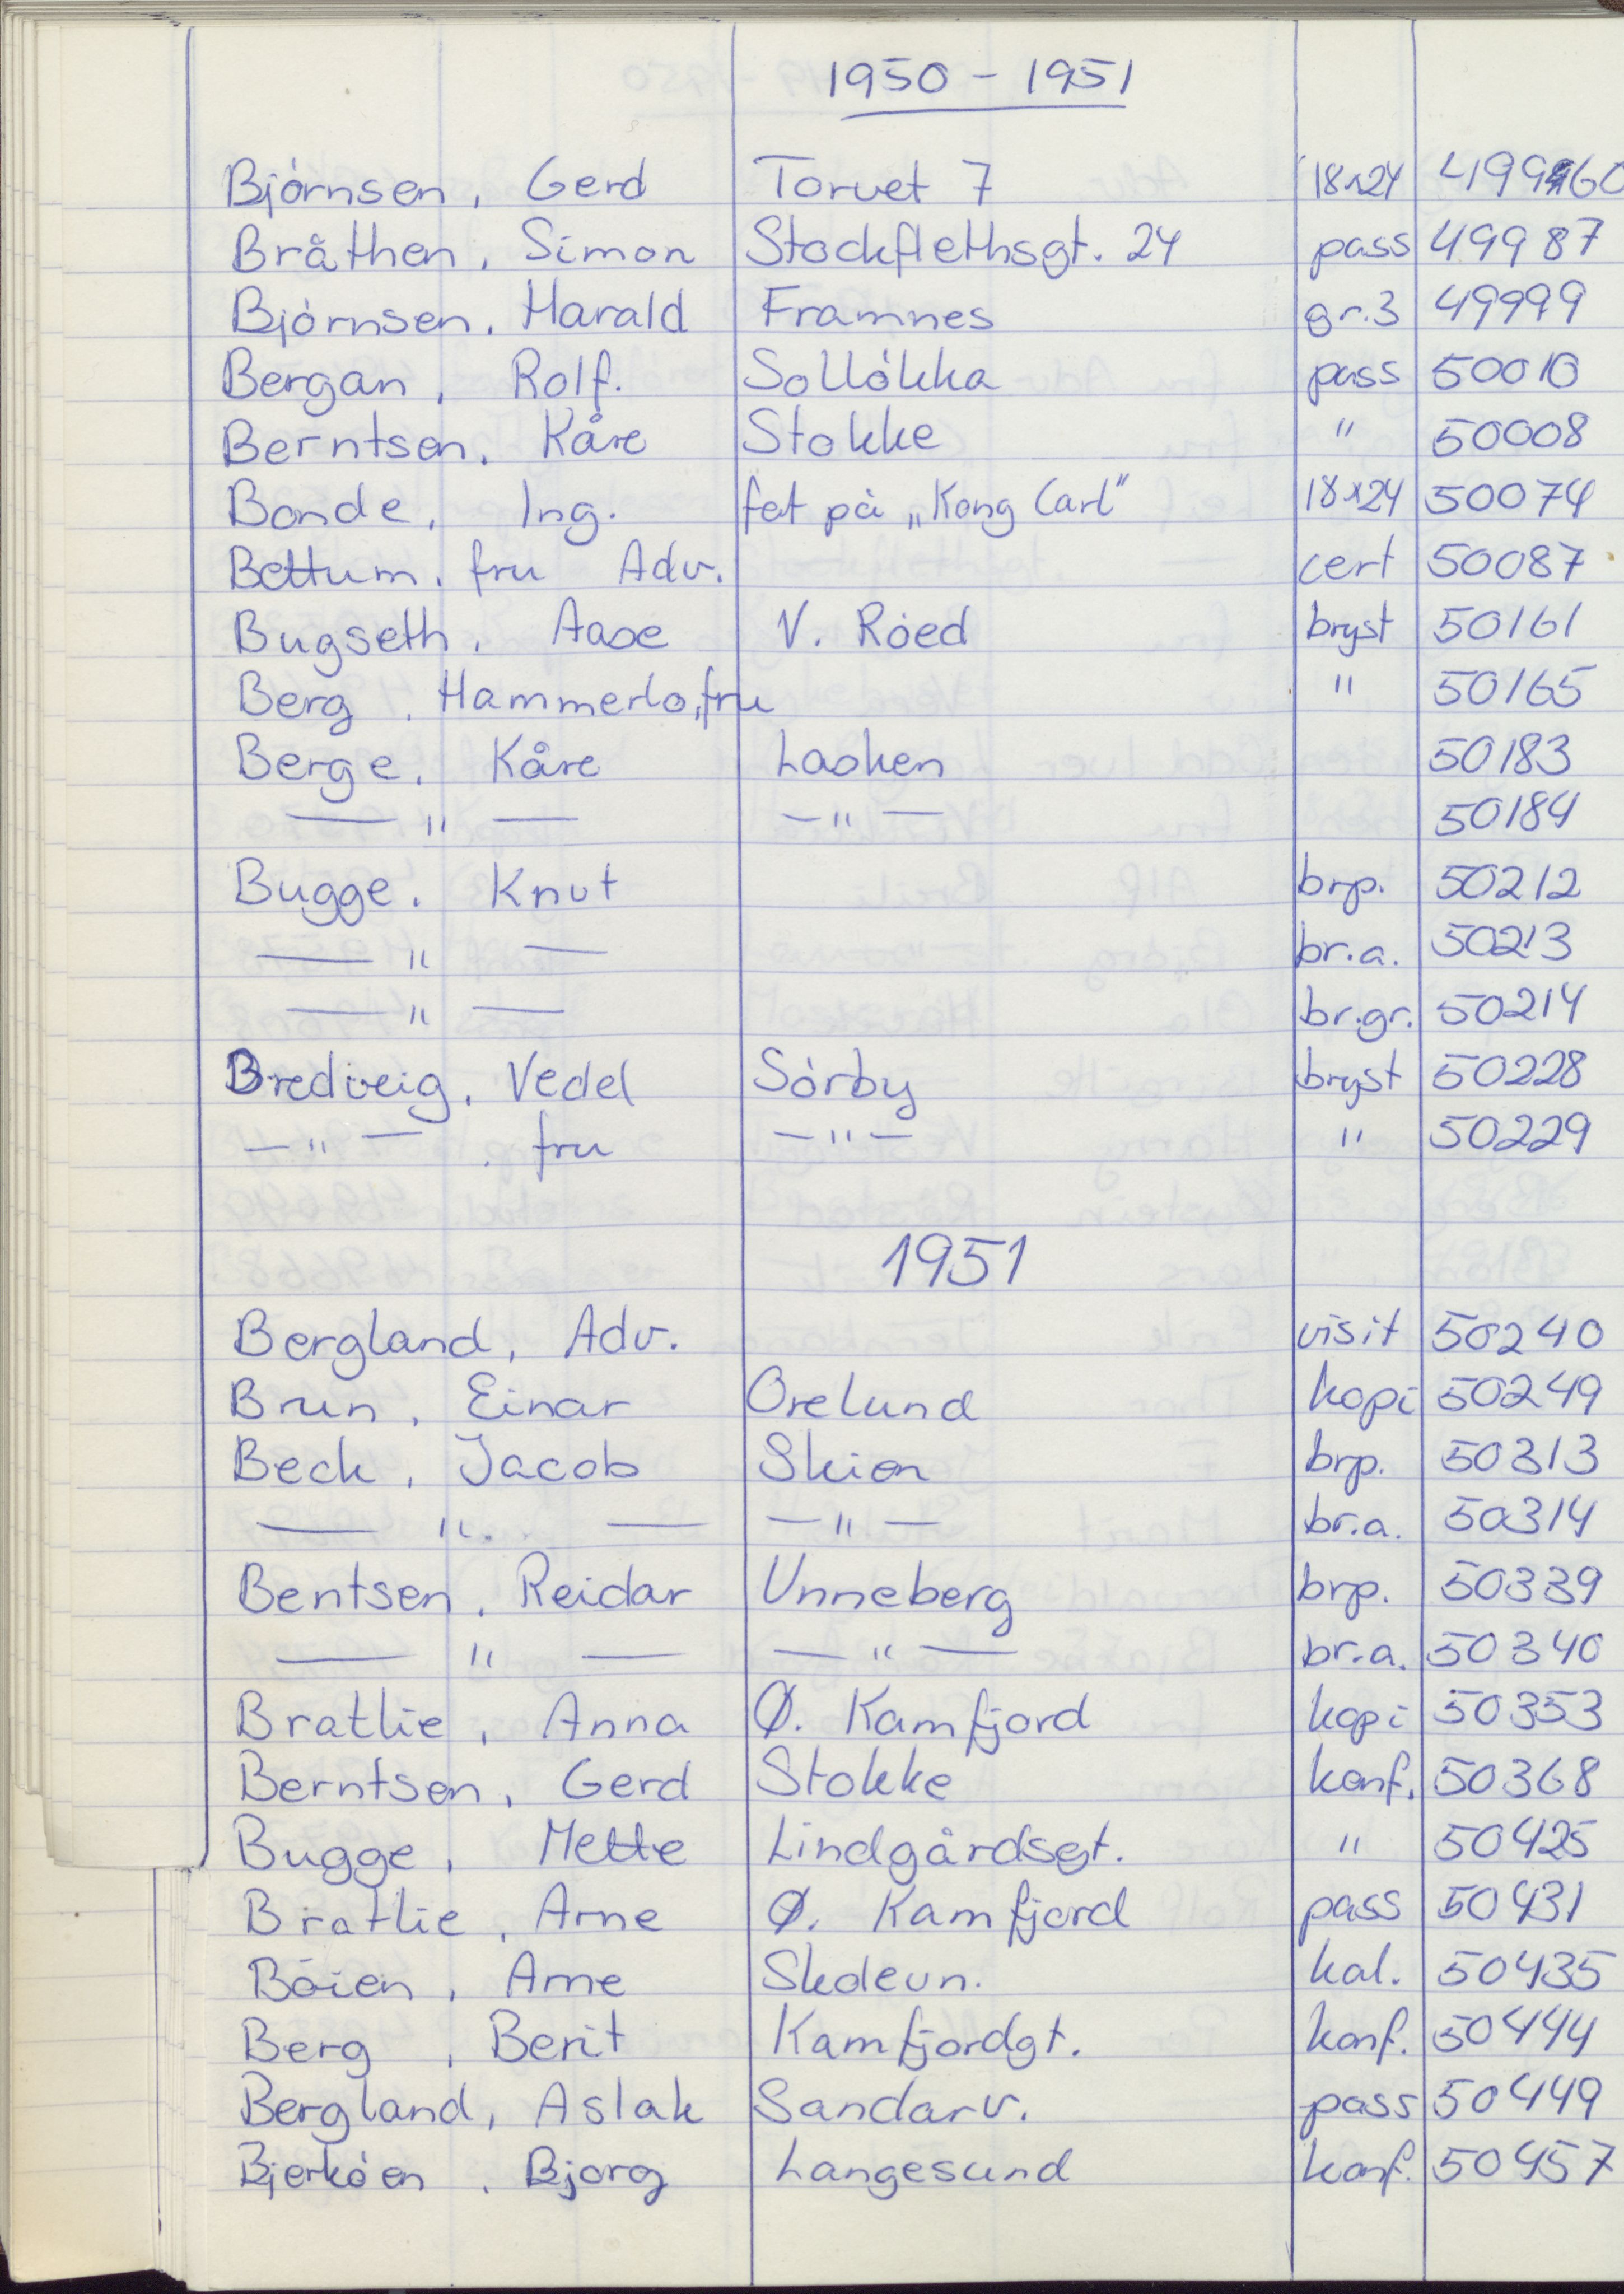 1950 - 1951
Björnsen, Gerd Torvet 7 18x24 49960
Bråthen, Simon Stockflethsgt. 24 pass 49987
Björnsen, Harald Framnes gr.3 49999
Bergan, Rolf. Sollökka pass 50010
Berntsen, Kåre Stokke " 50008
Bonde, Ing. fat på „Kong Carl" 18x24 50074
Bettum, fru Adv. cert 50087
Bugseth, Aase V. Röed bryst 50161
Berg, Hammerlo, fru " 50165
Berge, Kåre Lasken 50183
— " — — " — 50184
Bugge, Knut brp. 50212
— " — br.a. 50213
— " — br.gr. 50214
Bredveig, Vedel Sörby bryst 50228
— " —, fru — " — " 50229
1951
Bergland, Adv. visit 50240
Brun, Einar Orelund kopi 50249
Beck, Jacob Skien brp. 50313
— " — — " — br.a. 50314
Bentsen, Reidar Unneberg brp. 50339
— " — — " — br.a. 50340
Bratlie, Anna Ø. Kamfjord kopi 50353
Berntsen, Gerd Stokke konf. 50368
Bugge, Mette Lindgårdsgt. " 50425
Bratlie, Arne Ø. Kamfjord pass 50431
Böien, Arne kal. 50435
Berg, Berit Kamfjordgt. konf. 50444
Bergland, Aslak Sandarv. pass 50449
Bjerköen, Bjorg Langesund konf. 50457